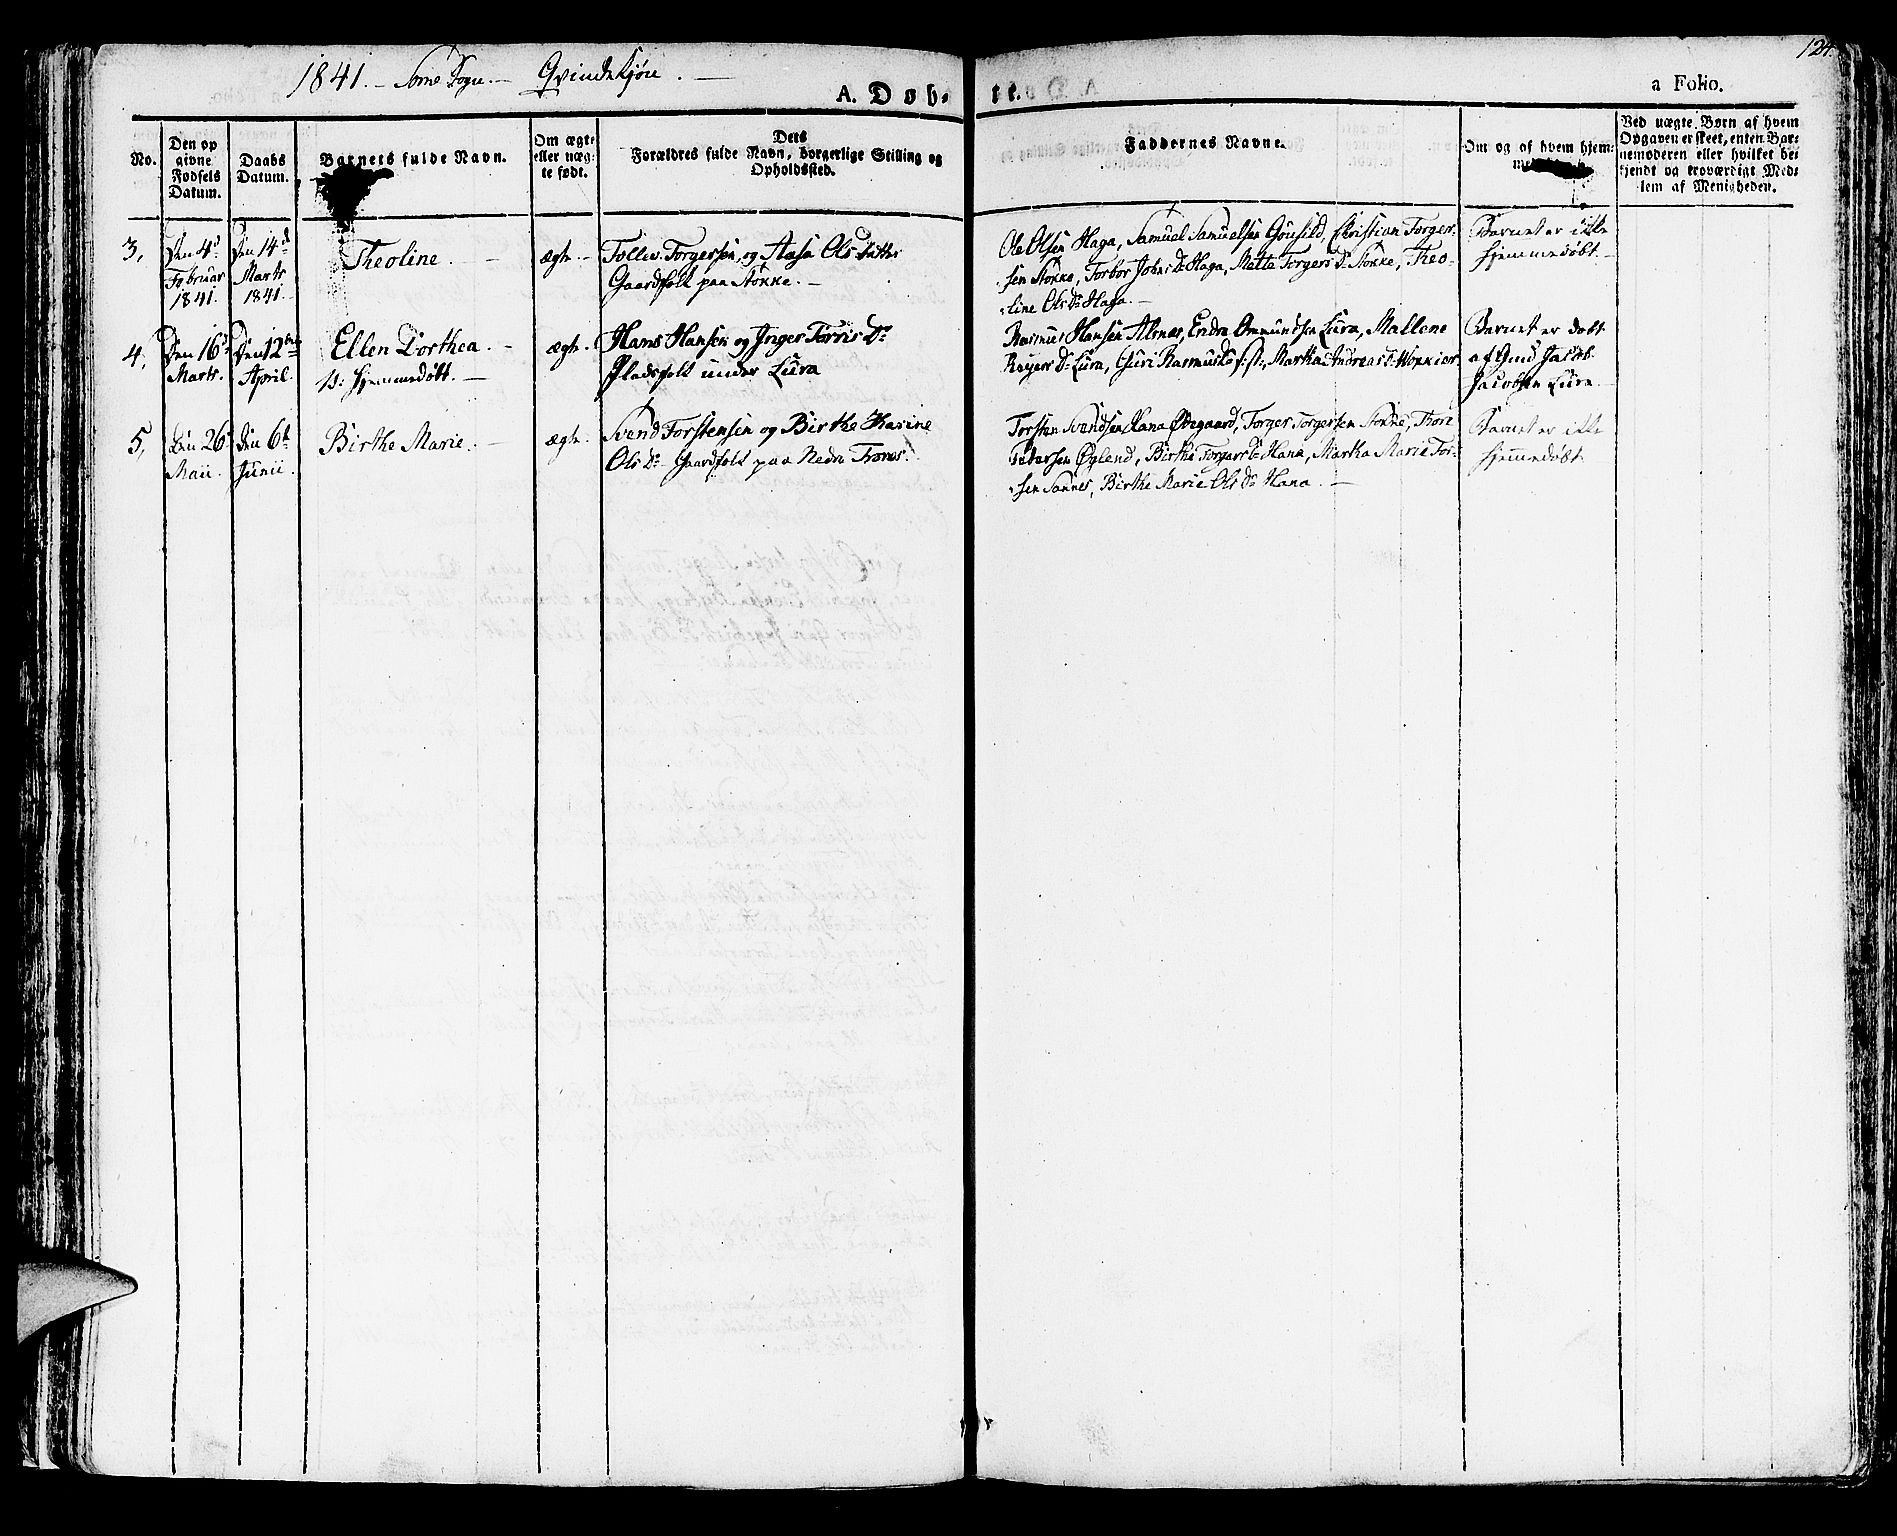 1841. — Some Sogn. — Qvindekjøn. —
124.
A. Døb-
te.
a Folio.
No.
Den op
givne
Fødsels
Datum.
Daabs
Datum.
Barnets fulde Navn.
Om ægte
eller uæg-
te født.
Dets
Forældres fulde Navn, borgerlige Stilling og
Opholdssted.
Faddernes Navne.
Om og af hvem hjem-
Ved uægte Børn af hvem
Opgaven er skeet, enten Bar-
nemoderen eller hvilket be-
kjendt og troværdigt Med-
lem af Menigheden.
3,
Den 4d
Februar
1841.
Den 14d
Marts
1841.
Theoline. —
ægte. —
Tollev Torgersen, og Aasa Ols Datter
Gaardfolk paa Stokke. —
Ole Olsen Haga, Samuel Samuelsen , Christian Torger-
sen Stokke, Torbor Johns Dr Haga, Metta Torgers Dr Stokke, Theo-
line Ols Dr Haga. —
Barnet er ikke
hjemmedøbt. —
4,
Den 16d
Marts.
Den 12te
April.
Ellen Dorthea. —
D: hjemmedøbt. —
ægte.
Hans Hansen og Inger Torris Dr
Pladsfolk under Lura
Rasmus Hansen Alsnæs, Endre Ommundsen Lura, Mallene
Reiers Dr Lura, Guri Rasmus Dr s: st:, Martha Andreas Dr
Barnet er døbt
af Gmd Jacob
Jacobsen Lura.
5,
Den 26
Maii.
Den 6te
Junii.
Birthe Marie. —
ægte.
Svend Torstensen og Birthe Karine
Ols Dr — Gaardfolk paa Nedre Trones.
Torsten Svendsen Hana Ødegaard, Torger Torgersen Stokke, Thore
Petersen Øglend, Birthe Torgers Dr Hana, Martha Marie Tor-
sen Sannes, Birthe Marie Ols Dr Hana. —
Barnet er ikke
hjemmedøbt.